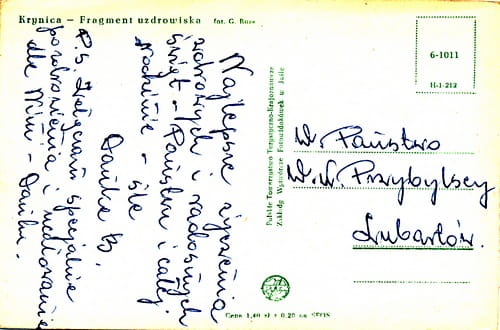 Krynica — Fragment uzdrowiska fot. G. Russ
6-1011
H-1-212
Najlepsze życzenia
zdrowych i radosnych
świąt - Państwu i całej
rodzinie - śle
Danka B.
P.S. Załączam specjalnie
pozdrowienia i ucałowania
dla Mimi - Danki.
Polskie Towarzystwo Turystyczno-Krajoznawcze
Zakłady Wytwórcze Fotowidokówek w Jaśle
W. Państwo
W. W. Przybylscy
Lubartów.
Cena 1,40 zł + 0,20 na SFOS